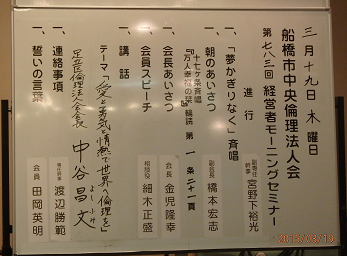 三月十九日 木曜日
船橋市中央倫理法人会
第七八三回 経営者モーニングセミナー
進行 副専任幹事 宮野下裕光
一、「夢かぎりなく」斉唱
一、朝のあいさつ 副会長 橋本宏志
十七ヶ条斉唱
『万人幸福の栞』輪読 第一条 二十一頁
一、会長あいさつ 会長 金児隆幸
一、会員スピーチ 相談役 細木正盛
一、講話
テーマ「愛と勇気と情熱で世界へ倫理を」
足立区倫理法人会会長 中谷昌文
よしふみ
一、連絡事項 専任幹事 渡辺勝範
一、誓いの言葉 会員 田岡英明
2015/03/19